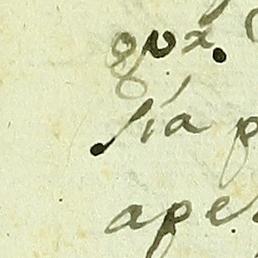 qua.
sía p
ape